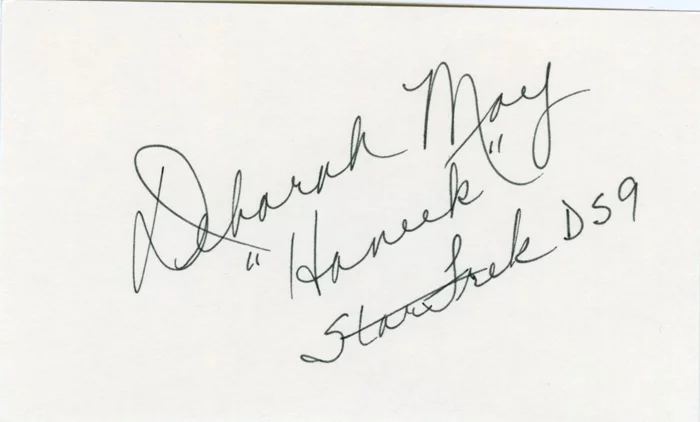 Deborah May
"Haneek"
Star Trek DS9